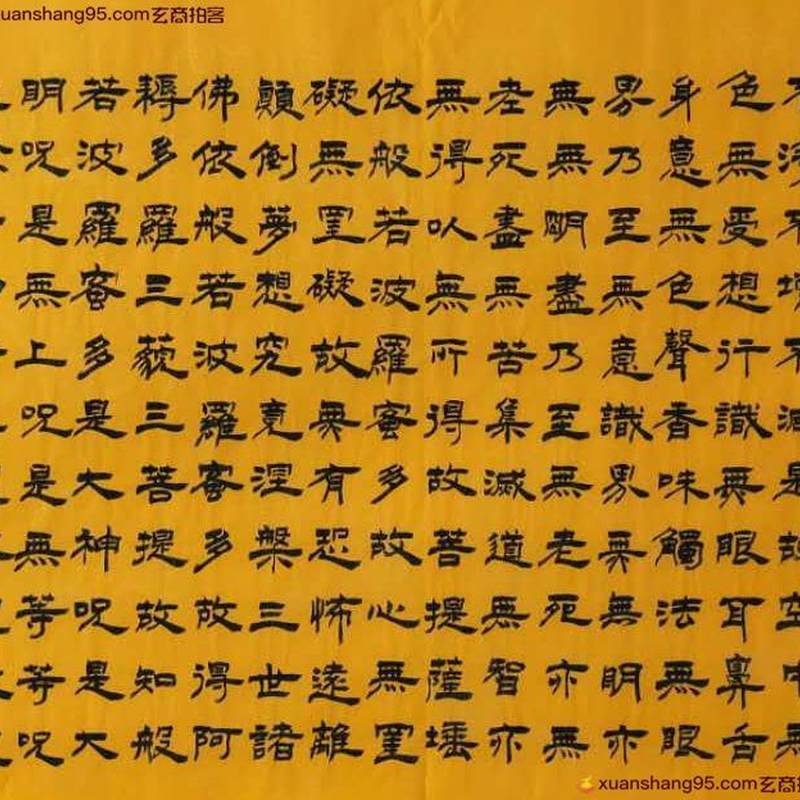 uanshang95.com玄商拍客
不淨不增不減是故空中無
色無受想行識無眼耳鼻舌
身意無色聲香味觸法無眼
界乃至無意識界無無明亦
無無明盡乃至無老死亦無
老死盡無苦集滅道無智亦
無得以無所得故菩提薩埵
依般若波羅蜜多故心無罣
礙無罣礙故無有恐怖遠離
顛倒夢想究竟涅槃三世諸
佛依般若波羅蜜多故得阿
耨多羅三藐三菩提故知般
若波羅蜜多是大神呪是大
明呪是無上呪是無等等呪
xuanshang95.com玄商拍客